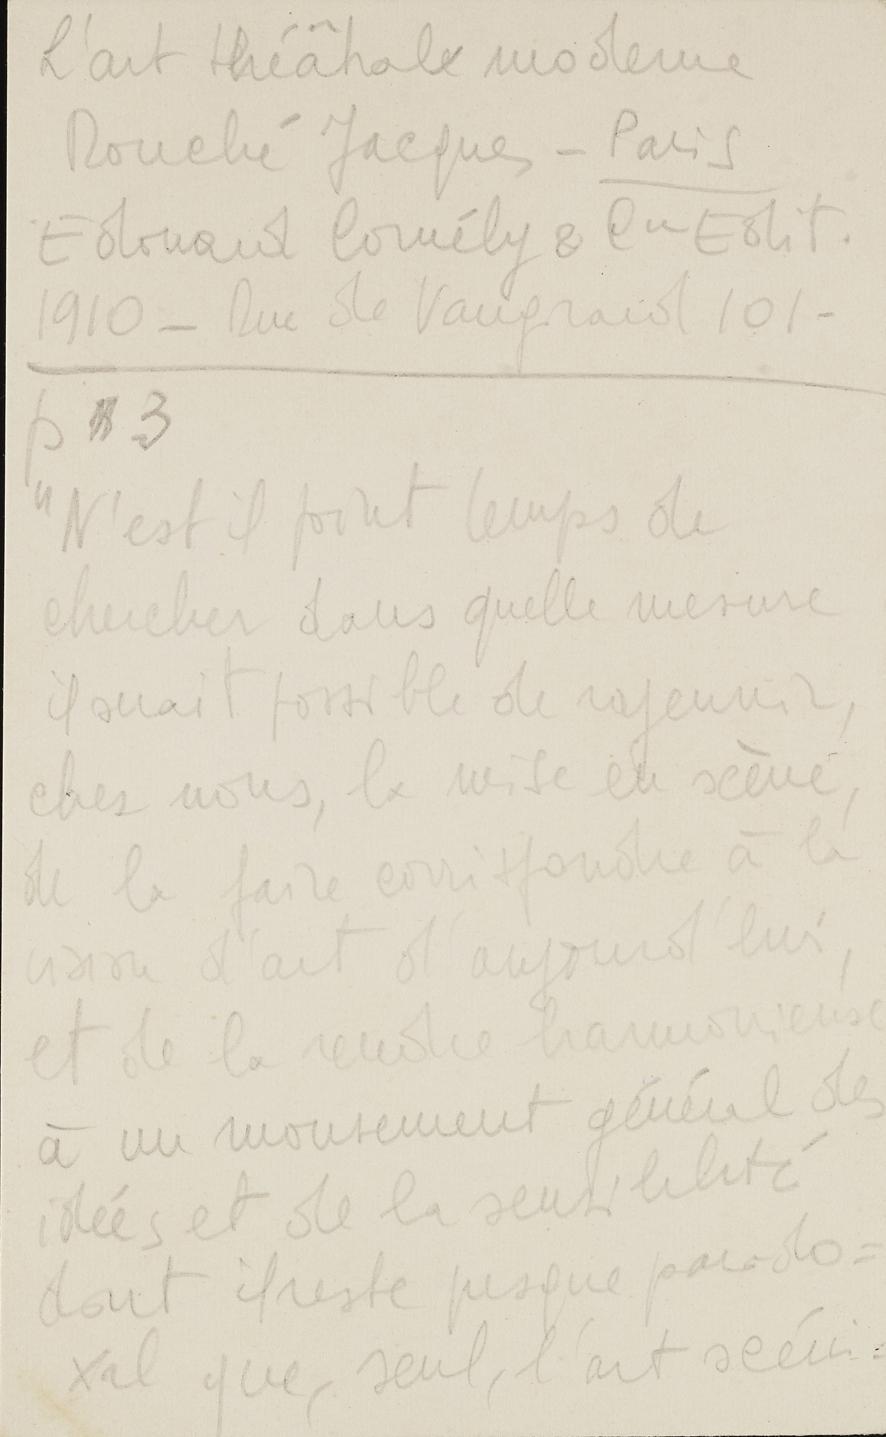 L'art théâtrale moderne
Rouché Jacques - Paris
Edouard Cornély & Cie Edit.
1910 - Rue de Vaugiraud 101 -
p 3
"N'est il point temps de
chercher dans quelle mesure
il serait possible de rajeunir,
chez nous, la mise en scène,
de la faire correspondre à la
vision d'art d'aujourd'hui,
et de la rendre harmonieuse
à un mouvement général des
idées et de la sensibilité
dont il reste presque parado=
xal que, seul, l'art scéni=